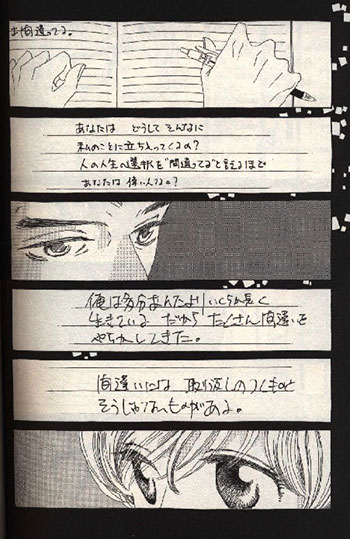 は間違ってる。
あなたは どうして そんなに
私のことに立ち入ってくるの?
人の人生の選択を"間違ってる"と言えるほど
あなたは 偉い人なの?
俺は多分あんたより いくらか長く
生きている だから たくさん間違いを
やらかしてきた。
間違いには 取り返しのつくものと
そうじゃないものがある。